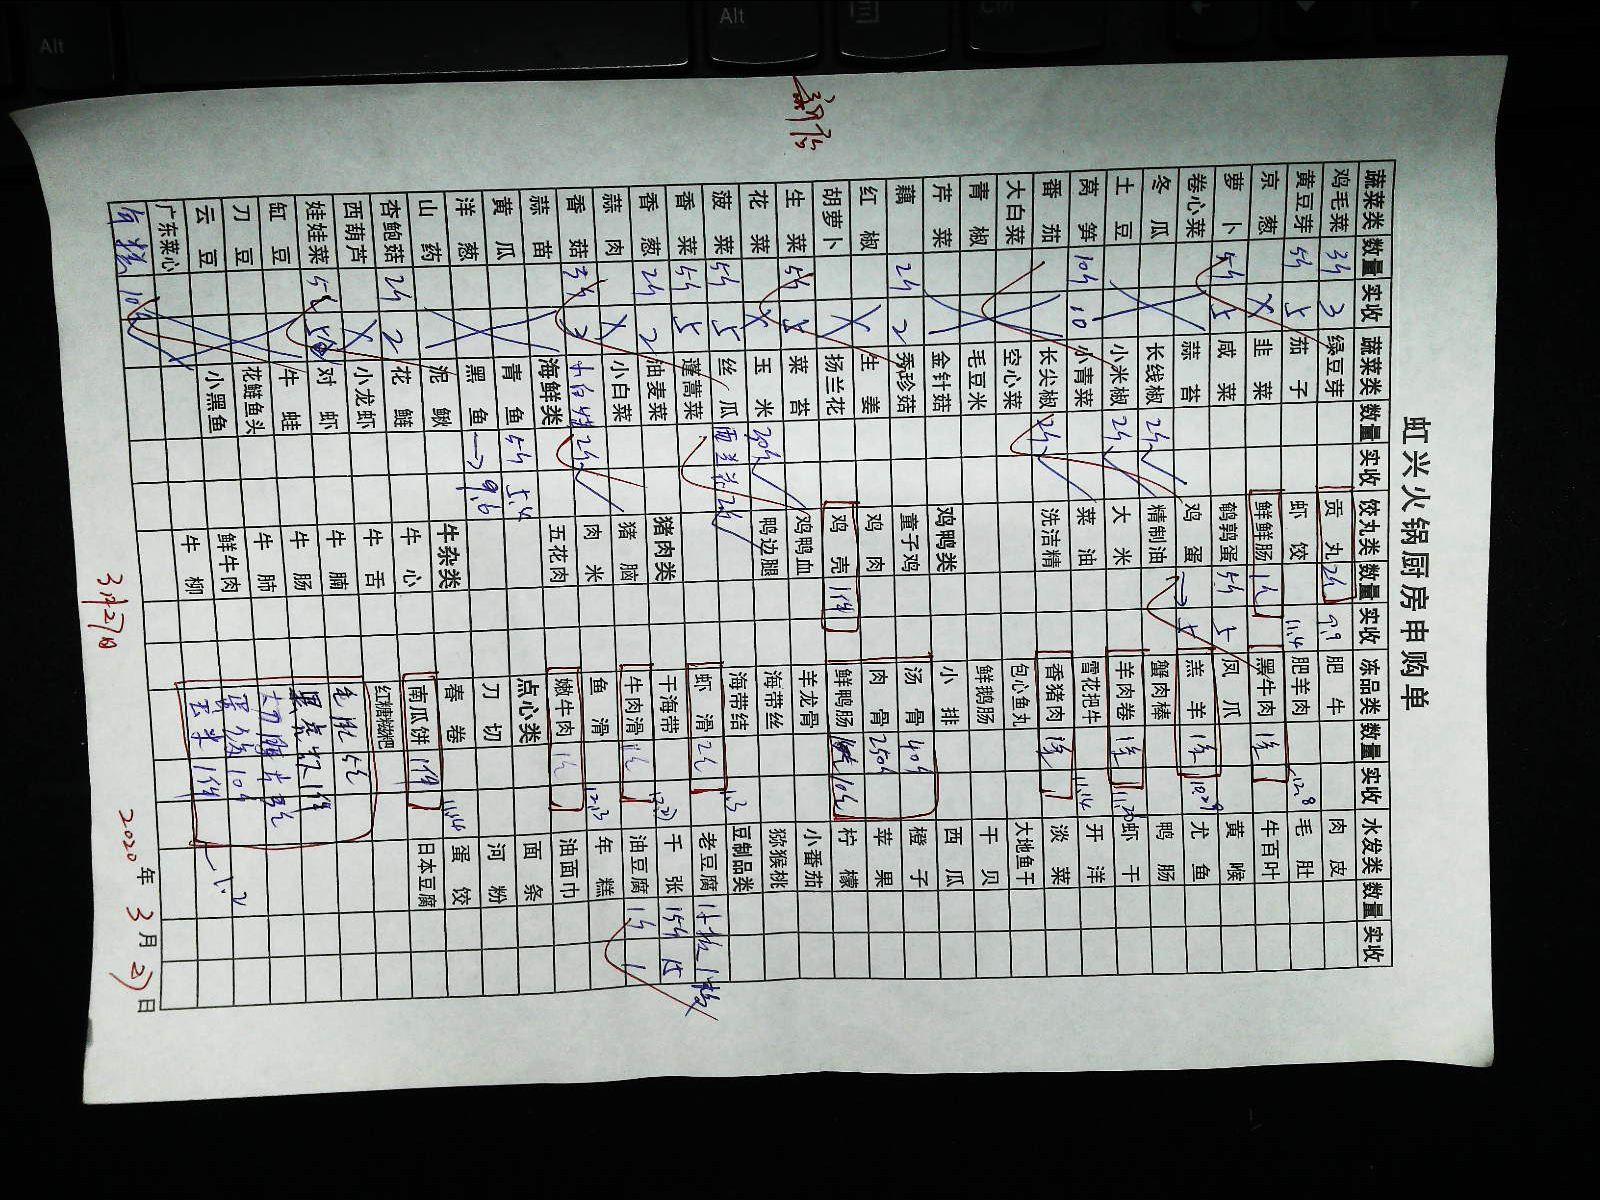 虹兴火锅厨房申购单
蔬菜类 数量 实收 蔬菜类 数量 实收 饺丸类 数量 实收 冻品类 数量 实收 水发类 数量 实收
鸡毛菜 3斤 3 绿豆芽 贡丸 2斤 9.9 肥牛 肉皮
黄豆芽 5斤 5 茄子 虾饺 11.4 肥羊肉 12.8 毛肚
京葱 韭菜 鲜鲜肠 1包 黑牛肉 1箱 牛百叶
萝卜 5斤 5 咸菜 鹌鹑蛋 5斤 5 凤爪 黄喉
卷心菜 蒜苔 鸡蛋 5 羔羊 1箱 10.29 尤鱼
冬瓜 长线椒 2斤 精制油 蟹肉棒 鸭肠
土豆 小米椒 2斤 大米 羊肉卷 1箱 11.20 虾干
莴笋 10斤 10 小青菜 菜油 雪花把牛 11.14 开洋
番茄 长尖椒 2斤 洗洁精 香猪肉 1箱 淡菜
大白菜 空心菜 包心鱼丸 大地鱼干
青椒 毛豆米 鲜鹅肠 干贝
芹菜 金针菇 鸡鸭类 小排 西瓜
藕 2斤 2 秀珍菇 童子鸡 汤骨 40斤 橙子
红椒 生姜 鸡肉 肉骨 250斤 苹果
胡萝卜 扬兰花 鸡壳 1件 鲜鸭肠 10包 柠檬
生菜 5斤 5 菜苔 鸡鸭血 羊龙骨 小番茄
花菜 玉米 30斤 鸭边腿 海带丝 猕猴桃
菠菜 5斤 5 丝瓜 西兰花 2斤 海带结 豆制品类
香菜 5斤 5 蓬蒿菜 虾滑 2包 1.3 老豆腐 1板 1板
香葱 2斤 2 油麦菜 猪肉类 干海带 千张 15斤 15
蒜肉 小白菜 猪脑 牛肉滑 1包 12.21 油豆腐 1斤 1
香菇 3斤 3 2斤 肉米 鱼滑 12.13 年糕
蒜苗 海鲜类 五花肉 嫩牛肉 1包 油面巾
黄瓜 青鱼 5斤 5.4 点心类 面条
洋葱 黑鱼 9.6 刀切 河粉
山药 泥鳅 牛杂类 春卷 11.14 蛋饺
杏鲍菇 2斤 2 花鲢 牛心 南瓜饼 1件 日本豆腐
西葫芦 小龙虾 牛舌 红糖糍粑
娃娃菜 5包 对虾 牛腩 毛肚 5包
缸豆 牛蛙 牛肠 1件
刀豆 花鲢鱼头 牛肺
云豆 小黑鱼 鲜牛肉 10斤
广东菜心 牛柳 玉米 1件 1.2
10斤
3月27日
2020年 3月27日